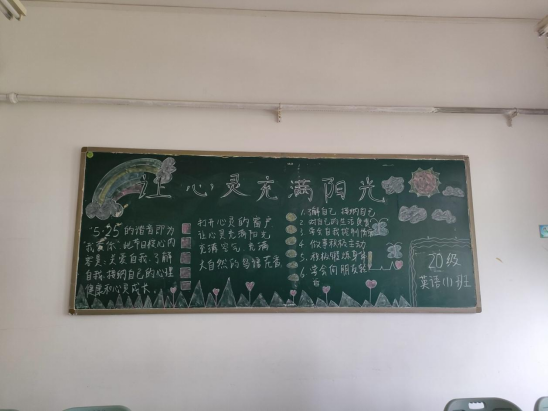 让心灵充满阳光
"5·25"的谐音即为
"我爱你",
关爱自我,了解
自我,接纳自己的心理
健康和心灵成长
打开心灵的窗户
让心灵充满阳光
充满空气 充满
大自然的鸟语花香
1.了解自己 接纳自己
2.对自己的生活负责
3.学会自我控制
4.做事积极主动
5.积极锻炼身体
6.学会向朋友
20级
英语(1)班